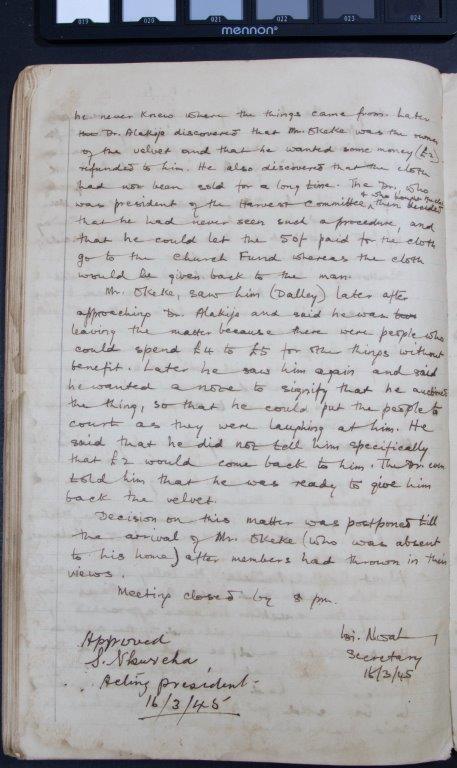 019 020 021 022 023 024
mennon®
he never knew where the things came from. Later
Dr. Alakija discovered that Mr. Okeke was the owner
of the velvet and that he wanted some money (£2)
refunded to him. He also discovered that the cloth
had not been sold for a long time. The Dr., who
was president of the Harvest Committee, & who bought the cloth then decided
that he had never seen such a procedure, and
that he could let the 50/- paid for the cloth
go to the Church Fund whereas the cloth
would be given back to the man.
Mr. Okeke, saw him (Dalley) later after
approaching Dr Alakija and said he was
leaving the matter because there were people who
could spend £4 to £5 for other things without
benefit. Later he saw him again and said
he wanted a note to signify that he auctioned
the thing, so that he could put the people to
court as they were laughing at him. He
said that he did not tell him specifically
that £2 would come back to him. The Dr. even
told him that he was ready to give him
back the velvet.
Decision on this matter was postponed till
the arrival of Mr. Okeke (who was absent
to his home) after members had thrown in their
views.
Meeting closed by 8 pm.
Approved
Secretary
16/3/45
Acting president
16/3/45